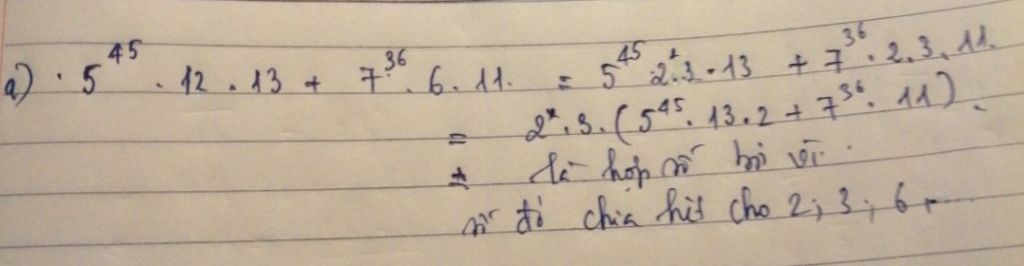 a) · 5^45 . 12 . 13 + 7^36 . 6 . 11. = 5^45 2^2.3.13 + 7^36 . 2.3.11.
= 2.3.(5^45. 13.2 + 7^36. 11).
là hợp số bởi vì.
số đó chia hết cho 2; 3; 6